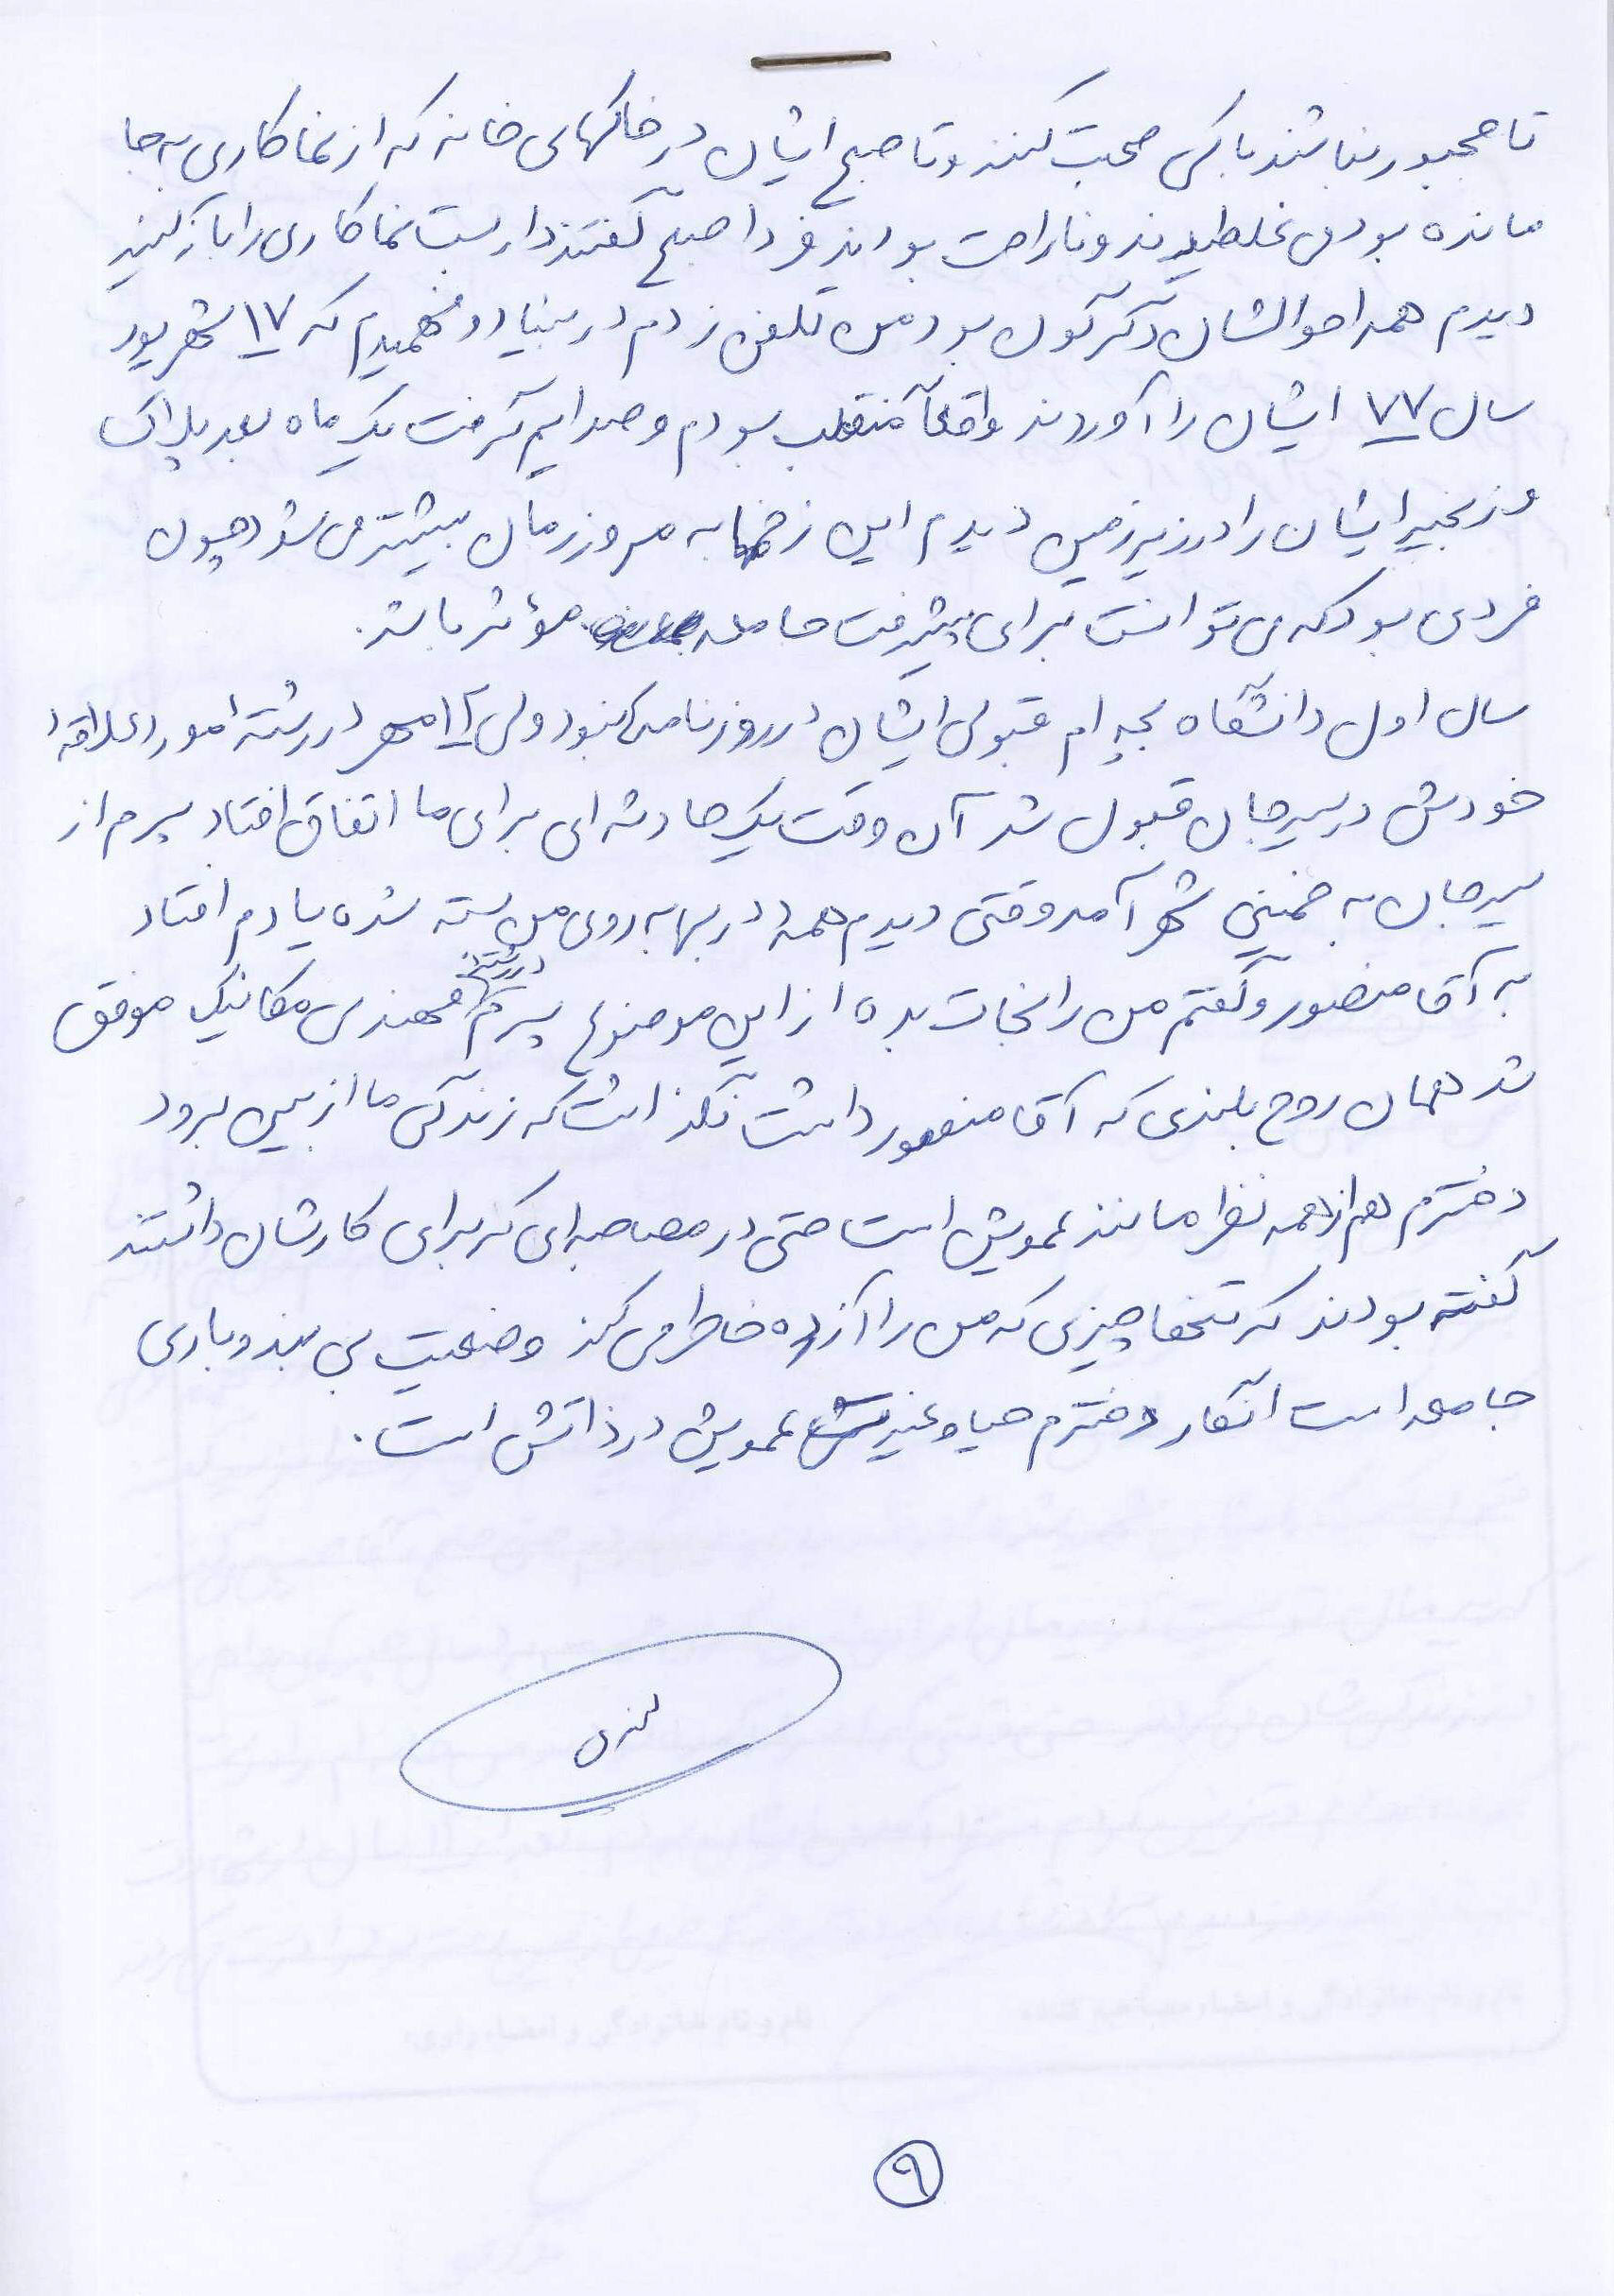 تا مجبور نباشند با کسی صحبت کنند و تا صبح ایشان در خاکهای خانه که از نما کاری به جا
مانده بود می غلطیدند و ناراحت بودند فردا صبح گفتند داربست نما کاری را باز کنید
دیدم همه احوالشان دگرگون بود من تلفن زدم در بنیاد و فهمیدم که ۱۷ شهریور
سال ۷۷ ایشان را آوردند واقعاً منقلب بودم و صدایم گرفت یک ماه بعد پلاک
و زنجیر ایشان را در زیرزمین دیدم این زخمها به مرور زمان بیشتر می شود چون
فردی بود که می توانست برای پیشرفت جامعه مؤثر باشد.
سال اول دانشگاه بچه ام قبولی ایشان در روزنامه نبود ولی ۱۲ مهر در رشته مورد علاقه
خودش در سیرجان قبول شد آن وقت یک حادثه ای برای ما اتفاق افتاد پسرم از
سیرجان به خمینی شهر آمد وقتی دیدم همه دربها به روی من بسته شده یادم افتاد
به آقا منصور و گفتم من را نجات بده از این موضوع پسرم در رشته مهندسی مکانیک موفق
شد همان روح بلندی که آقا منصور داشت نگذاشت که زندگی ما از بین برود
دخترم هم از همه نظر مانند عمویش است حتی در مصاحبه ای که برای کارشان داشتند
گفته بودند که تنها چیزی که من را آزرده خاطر می کند وضعیت بی بند و باری
جامعه است انگار دخترم حیا و غیرت عمویش در ذاتش است.
۹